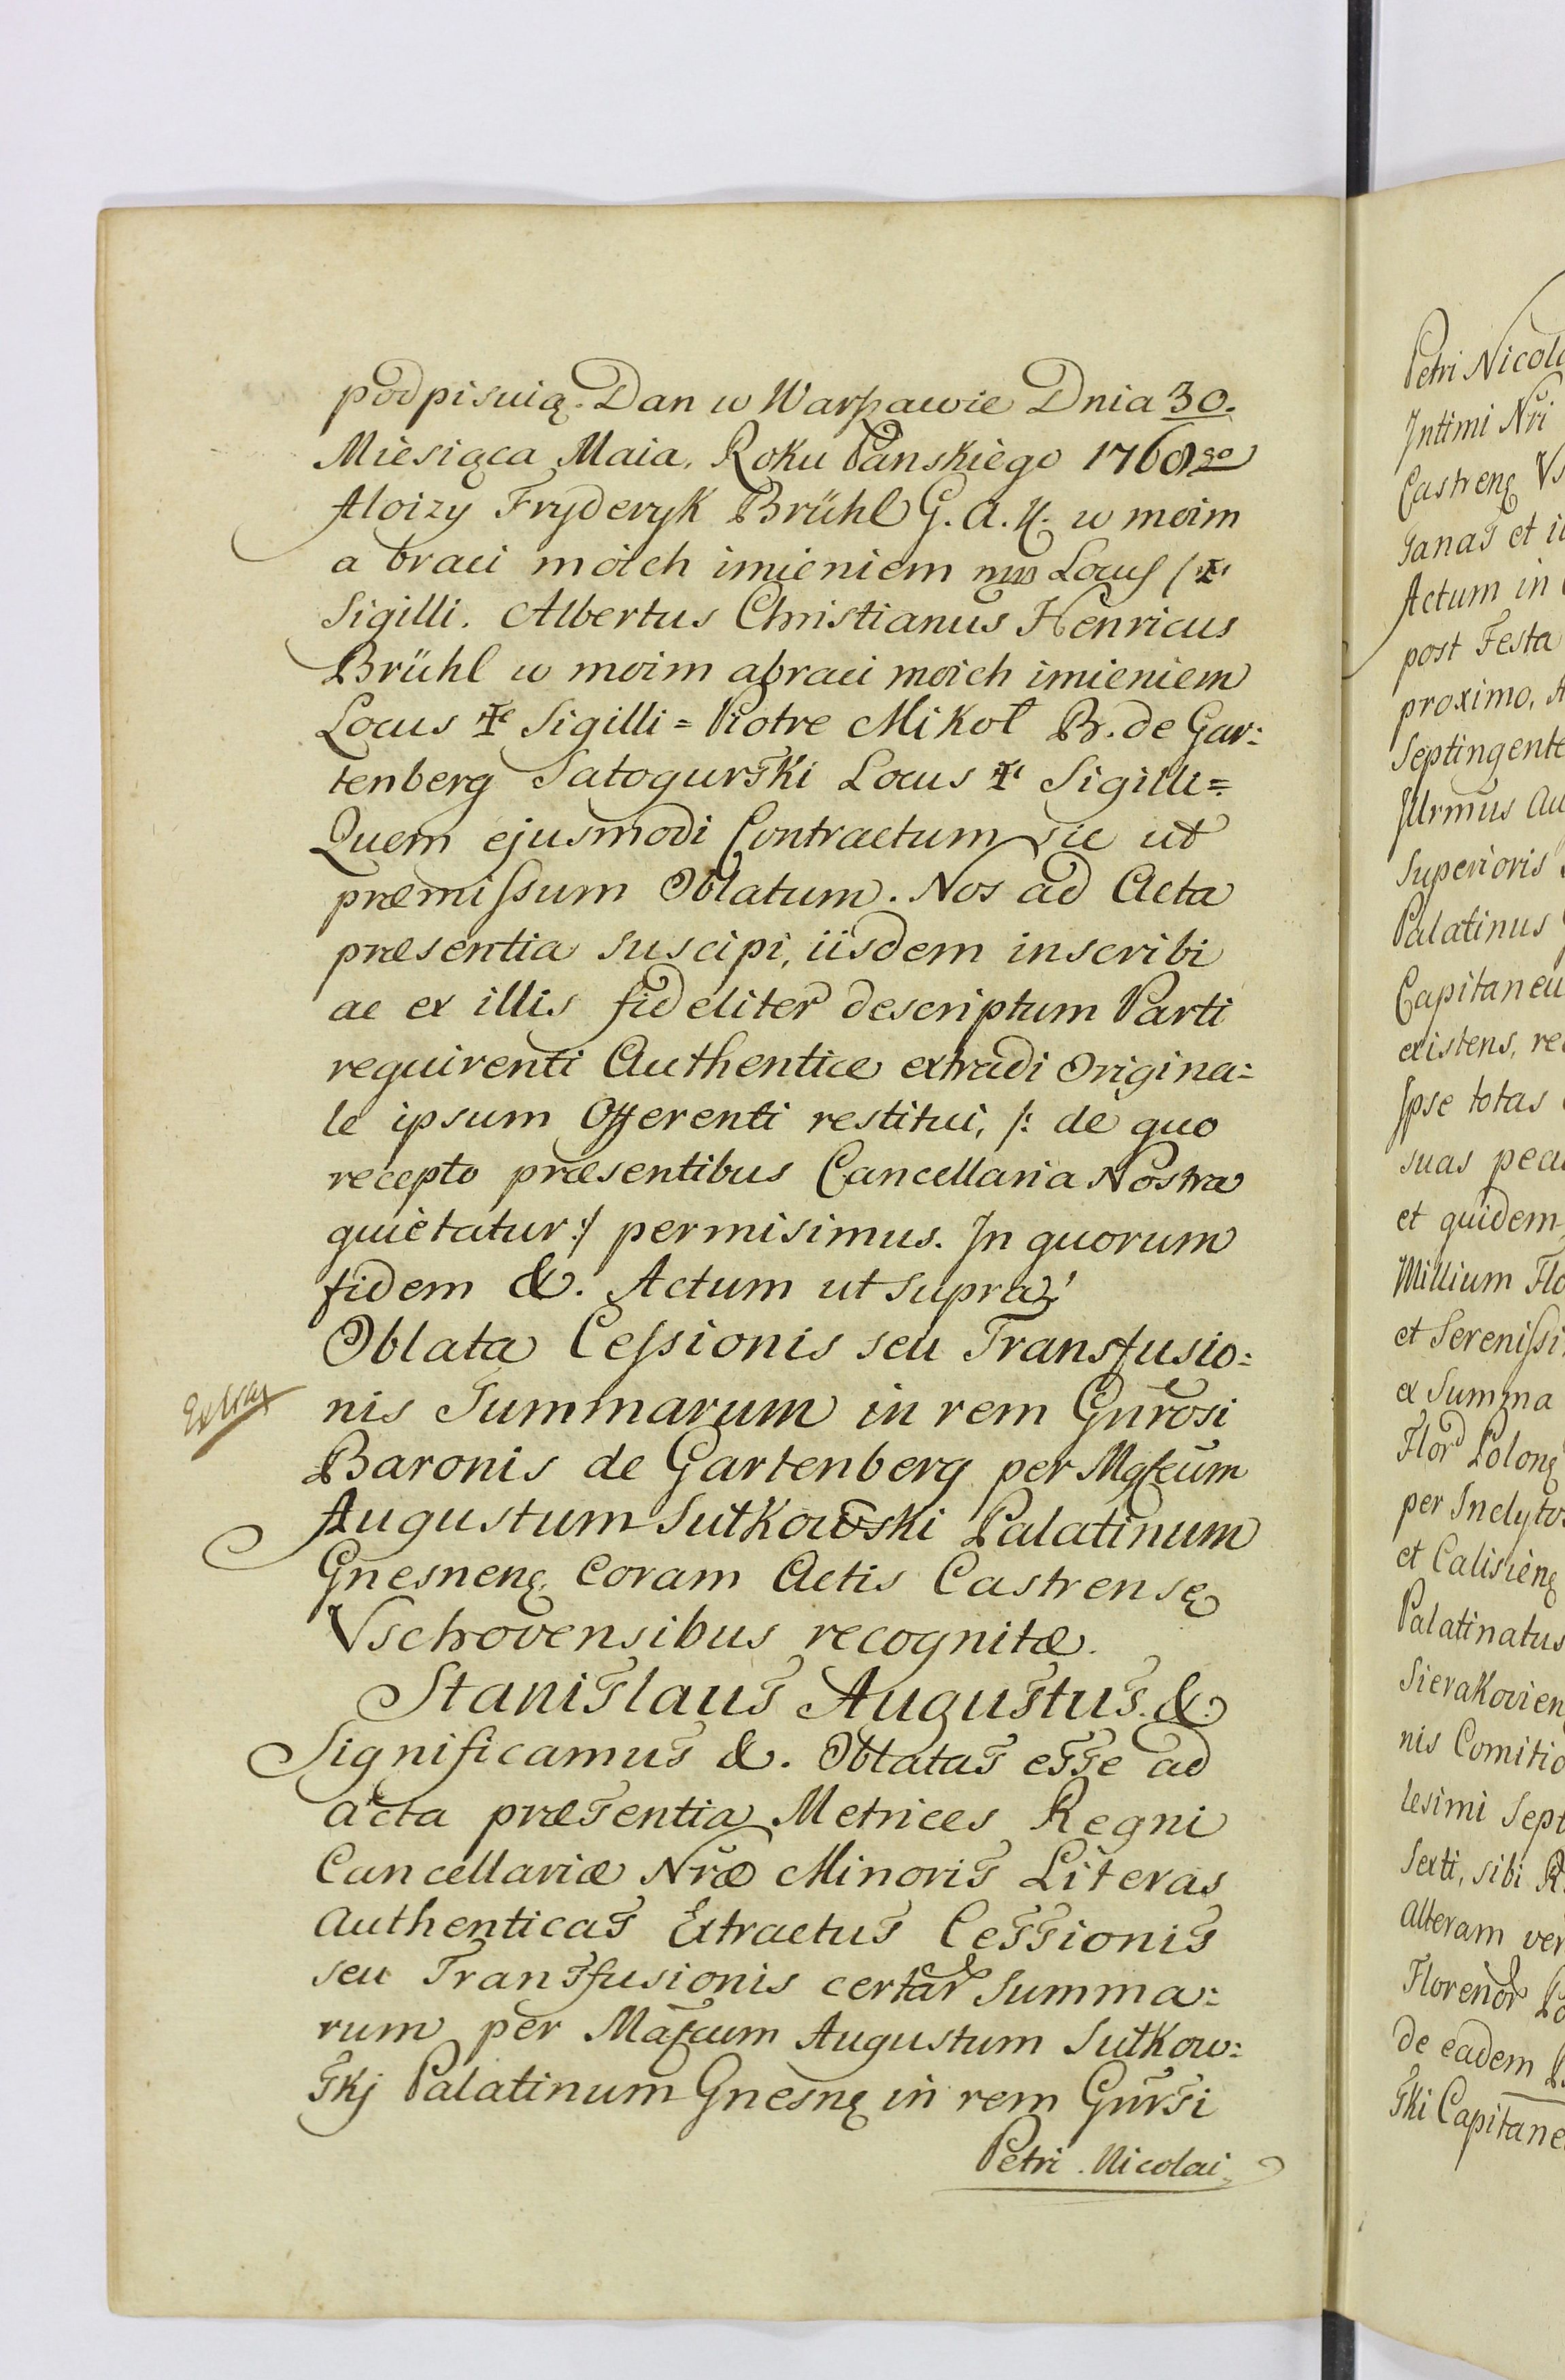 podpisuią. Dan w Warszawie Dnia 30.
Miesiąca Maia. Roku Panskiego 1768go
Aloizy Fryderyk Brühl G. A. K. w moim
a braci moich imieniem mm Locus
Sigilli. Albertus Christianus Henricus
Brühl w moim a braci moich imieniem
Locus ✠ Sigilli = Piotre Mikoł B. de Gar:
tenberg Satogurski Locus ✠ Sigilli =
Quem ejusmodi Contractum sic ut
præmissum Oblatum. Nos ad Acta
præsentia suscipi, iisdem inscribi
ac ex illis fideliter descriptum Parti
requirenti Authentice extradi Origina:
le ipsum Offerenti restitui, /: de quo
recepto præsentibus Cancellaria Nostra
quietatur :/ permisimus. In quorum
fidem &. Actum ut supra
Oblata Cessionis seu Transfusio:
Extrax
nis Summarum in rem Gnrosi
Baronis de Gartenberg per Mgfcum
Augustum Sułkowski Palatinum
Gnesnenę. Coram Actis Castrensę
Vschovensibus recognitæ.
Stanislaus Augustus. &.
Significamus &. Oblatas esse ad
acta præsentia Metrices Regni
Cancellariæ Nræ Minoris Literas
authenticas Extractus Cessionis
seu Transfusionis certar Summa:
rum per Mafcum Augustum Sułkow:
skj Palatinum Gnesnę in rem Gnrsi
Petri Nicolai
Petri Nicola
Intimi Nri
Castrenę Vs
sanas et i
Actum in
post Festa
proximo, A
Septingente
Illrmus Au
Superioris
Palatinus
Capitaneu
existens, re
Ipse totas
suas pecu
et quidem
Millium Flo
et Serenissi
ex Summa
Flor Polonę
per Inclyto
et Calisienę
Palatinatus
Sierakovien
nis Comitio
lesimi Sept
Sexti, sibi R
alteram ver
Florenor Po
de eadem P
ski Capitane